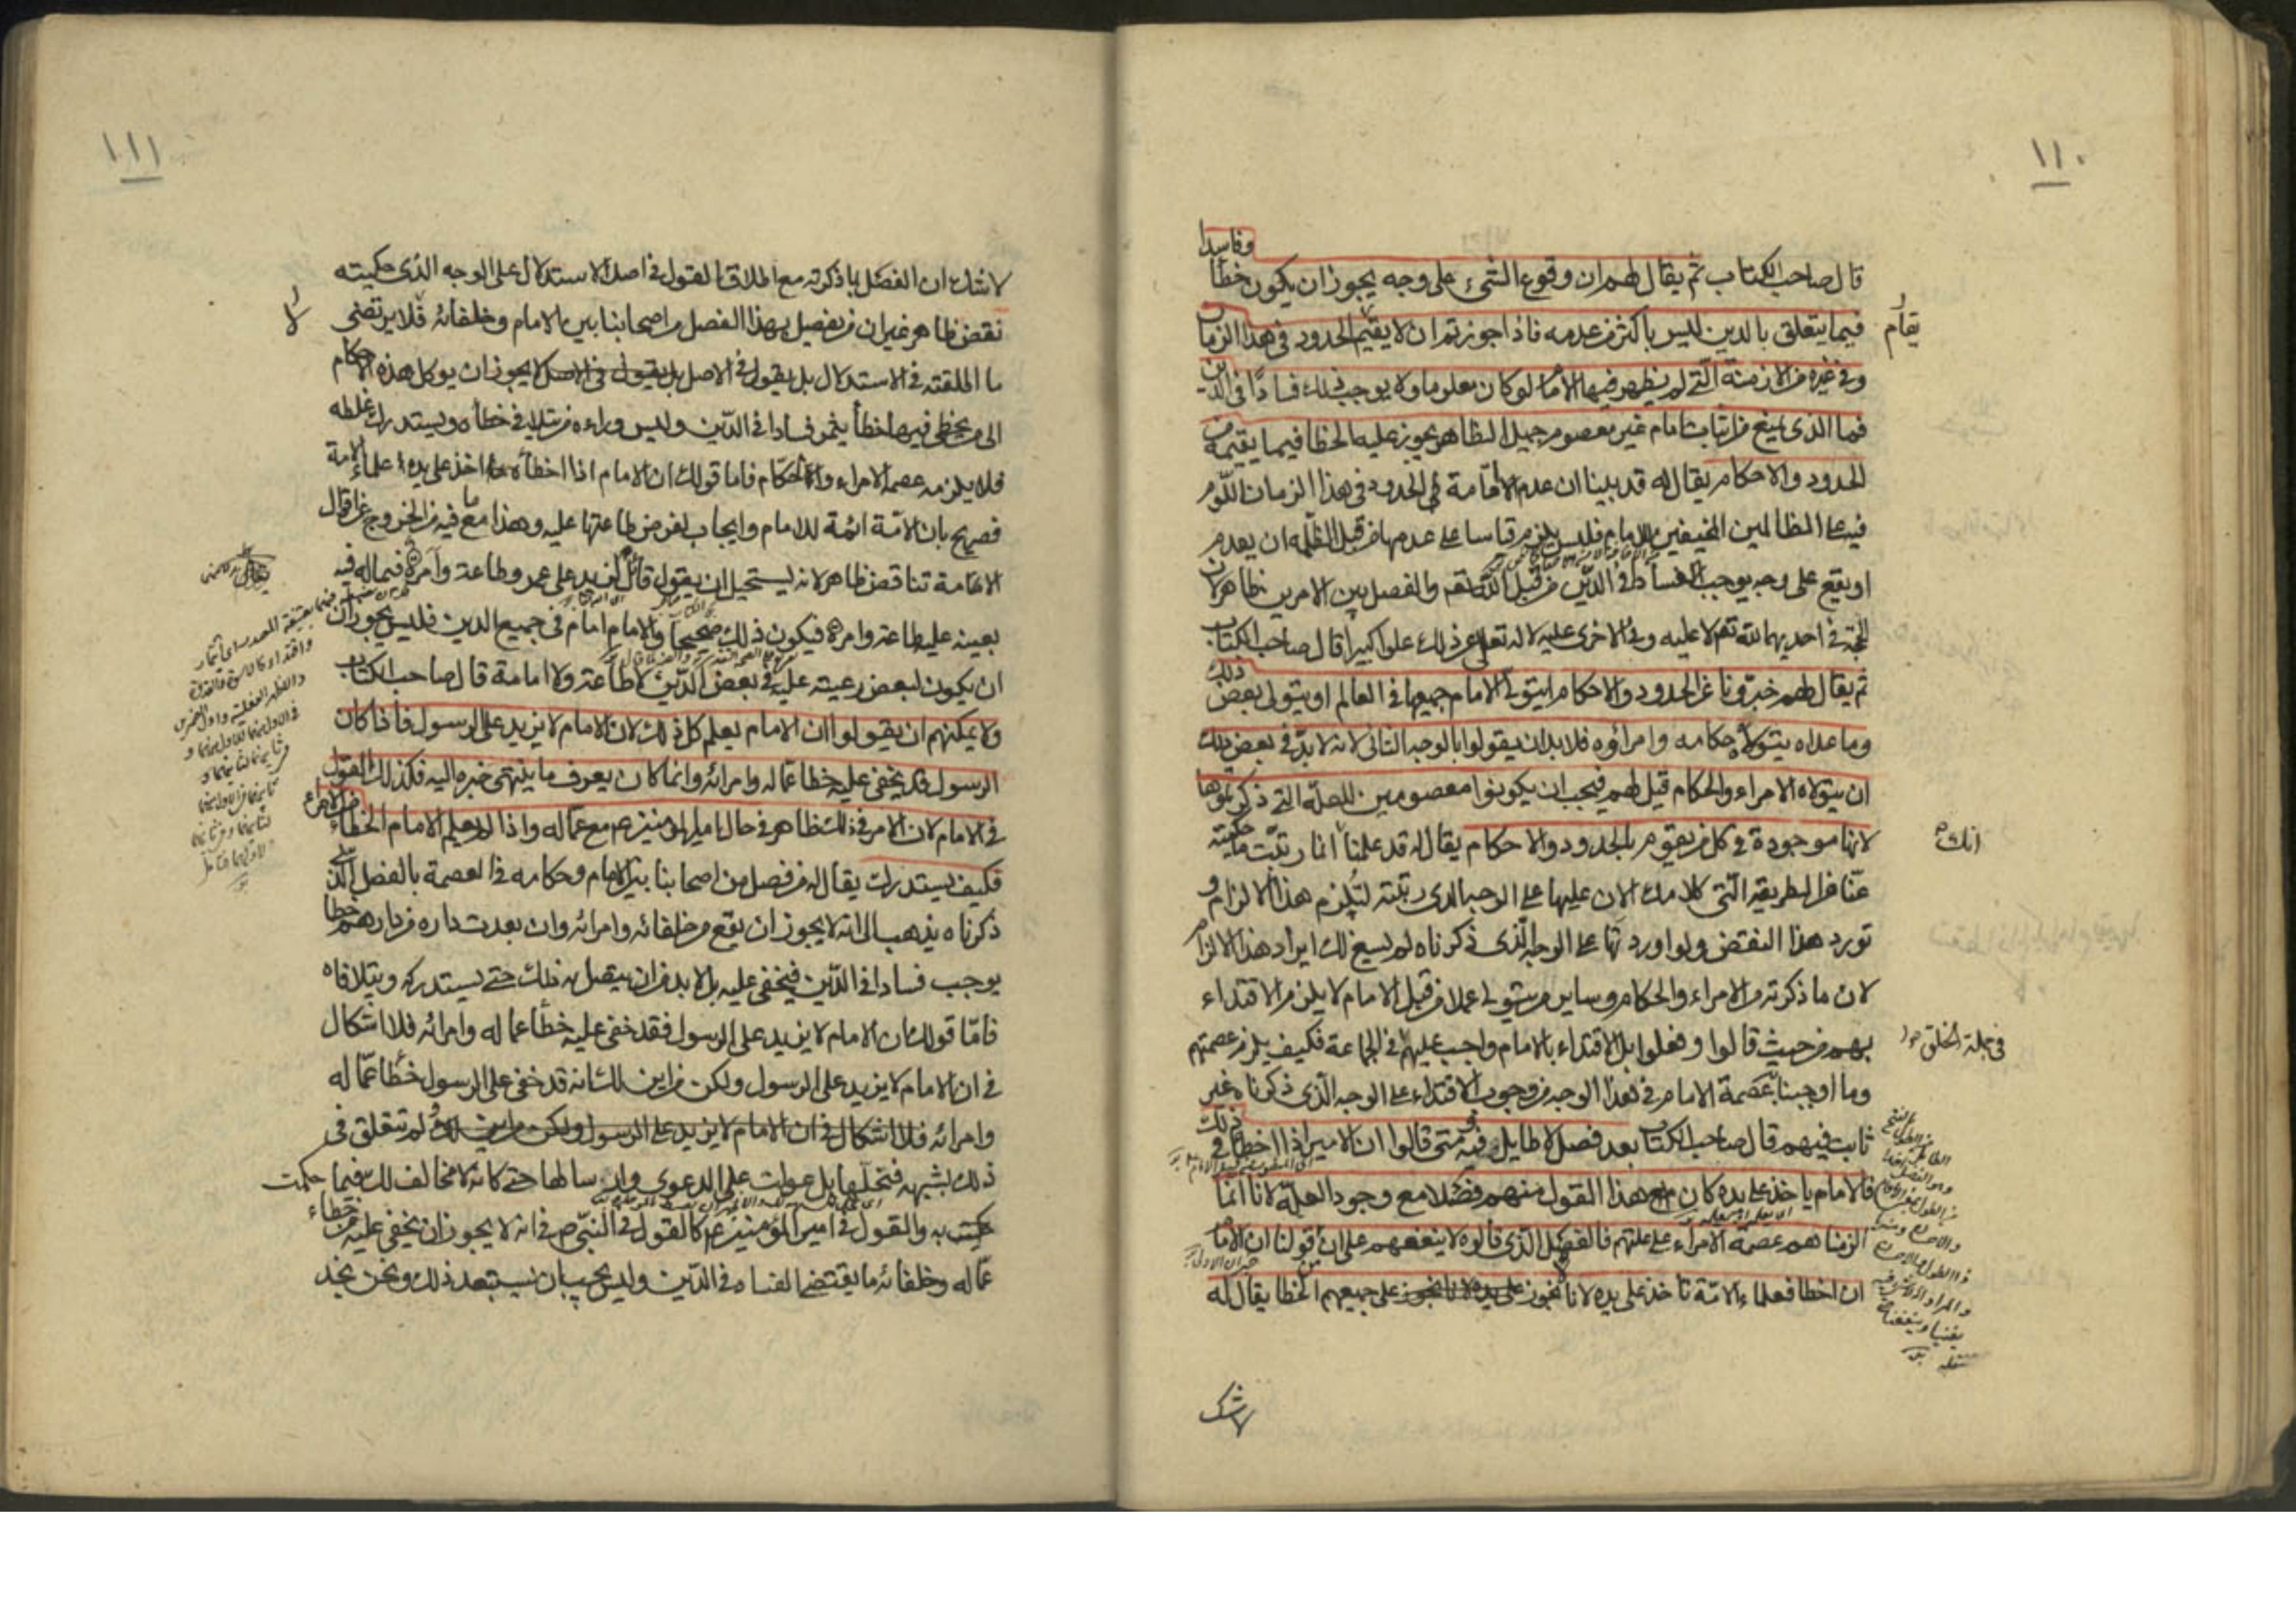 ١١٠
وفاسدا
قال صاحب الكتاب ثم يقال لهم ان وقوع الشيء على وجه يجوز ان يكون خطأ
فيما يتعلق بالدين ليس باكثر من عدمه فاذا جوزتم ان لا يقيم الحدود في هذا الزمان
يقام
وفي غيره من الازمنة التي لم يظهر فيها الامام لو كان معلوما ولا يوجب ذلك فسادا في الدين
فما الذي يمنع من اثبات امام غير معصوم جميل الظاهر يجوز عليه الخطا فيما يقيمه من
الحدود والاحكام يقال له قد بينا ان عدم الاقامة في الحدود في هذا الزمان اللوم
فيه على الظالمين المخيفين للامام فليس يلزم قياسا على عدمها من قبل الظلمه ان يعدم
او يقع على وجه يوجب الفساد في الدين من قبل الله تعم والفصل بين الامرين ظاهر لان
الحجة في احديهما لله تعم لا عليه وفي الاخرى عليه لا له تعالى عن ذلك علوا كبيرا قال صاحب الكتاب
ثم يقال لهم خبرونا عن الحدود والاحكام ايتولى الامام جميعها في العالم او يتولى بعض ذلك
وما عداه يتولاه حكامه وامراؤه فلا بد ان يقولوا بالوجه الثاني لانه لا بد في بعض ذلك
ان يتولاه الامراء والحكام قيل لهم فيجب ان يكونوا معصومين للعلة التي ذكرتموها
لانها موجودة في كل من يقوم بالحدود والاحكام يقال له قد علمنا انما رتبت ما حكيته
انك
عنا من الطريقة التي كلامك الان عليها على الوجه الذي رتبته لتلزم هذا الالزام و
تورد هذا النقض ولو اوردتها على الوجه الذي ذكرناه لم يسغ لك ايراد هذا الالزام
لان ما ذكرته من الامراء والحكام وساير من يتولى عملا من قبل الامام لا يلزم الاقتداء
بهم من حيث قالوا وفعلوا بل الاقتداء بالامام واجب عليهم في الجماعة فكيف يلزم عصمتهم
في جملة الخلق
وما اوجبنا عصمة الامام في هذا الوجه من وجوب الاقتداء على الوجه الذي ذكرناه غير
ثابت فيهم قال صاحب الكتاب بعد فصل لا طايل فيه ومتى قالوا ان الامير اذا اخطأ في ذلك
فالامام ياخذ على يده كان مع هذا القول منهم فصلا مع وجود العلة لانا انما
الزمناهم عصمة الامراء على علتهم فالفصل الذي قالوه لا ينفعهم على ان قولنا ان الامام
ان اخطا فعلماء الامة تاخذ على يده لانا نجوز على يده لانا نجوز على جميعهم الخطا يقال له
لا شك
١١١
لا شك ان الفصل بما ذكرته مع اطلاق القول في اصل الاستدلال على الوجه الذي حكيته
نقض ظاهر غير ان من يفصل بهذا الفصل من اصحابنا بين الامام وخلفائه فلا يرتضى
ما اطلقته في الاستدلال بل يقول في الاصل بل يقول في الاصل لا يجوز ان يوكل هذه الاحكام
الى من يخطي فيها خطأ يثمر فسادا في الدين وليس وراءه من يتلافي خطأه ويستدرك غلطه
فلا يلزمه عصمة الامراء والحكام فاما قولك ان الامام اذا اخطأ اخذ على يده علماء الامة
فصريح بان الامة ائمة للامام وايجاب لفرض طاعتها عليه وهذا مع ما فيه من الخروج عن اقوال
الامامة تناقض ظاهر لانه يستحيل ان يقول قائل لزيد على عمرو طاعة وامرة فيما له فيه
بعينه عليه طاعة وامرة فيكون ذلك صحيحا والامام امام في جميع الدين فليس يجوز ان
ان يكون لبعض رعيته عليه في بعض الدين لا طاعة ولا امامة قال صاحب الكتاب
ولا يمكنهم ان يقولوا ان الامام يعلم كل ذلك لان الامام لا يزيد على الرسول فاذا كان
الرسول قد يخفى عليه خطا عماله وامرائه وانما كان يعرف ما ينتهى خبره اليه فكذلك القول
في الامام لان الامر في ذلك ظاهر في حال امير المؤمنين عم مع عماله واذا لم يعلم الامام الخطاء من الامراء
فكيف يستدرك يقال له من فصل من اصحابنا بين الامام وحكامه في العصمة بالفصل الذي
ذكرناه يذهب الى انه لا يجوز ان يقع من خلفائه وامرائه وان بعدت داره من دارهم خطا
يوجب فسادا في الدين فيخفى عليه بل لا بد من ان يتصل به ذلك حتى يستدركه ويتلافاه
فاما قولك ان الامام لا يزيد على الرسول فقد خفى عليه خطأ عماله وامرائه فلا اشكال
في ان الامام لا يزيد على الرسول ولكن من اين لك انه قد خفى على الرسول خطأ عماله
وامرائه فلا اشكال في ان الامام لا يزيد على الرسول ولكن من اين لك ولم تتعلق في
ذلك بشبهه فنحلها بل عولت على الدعوى وارسالها حتى كانه لا مخالف لك فيما حكمت
به والقول في امير المؤمنين عم كالقول في النبي ص في انه لا يجوز ان يخفى عليه من خطاء
عماله وخلفائه ما يقتضى الفساد في الدين وليس يجب ان يستبعد ذلك ونحن نجد